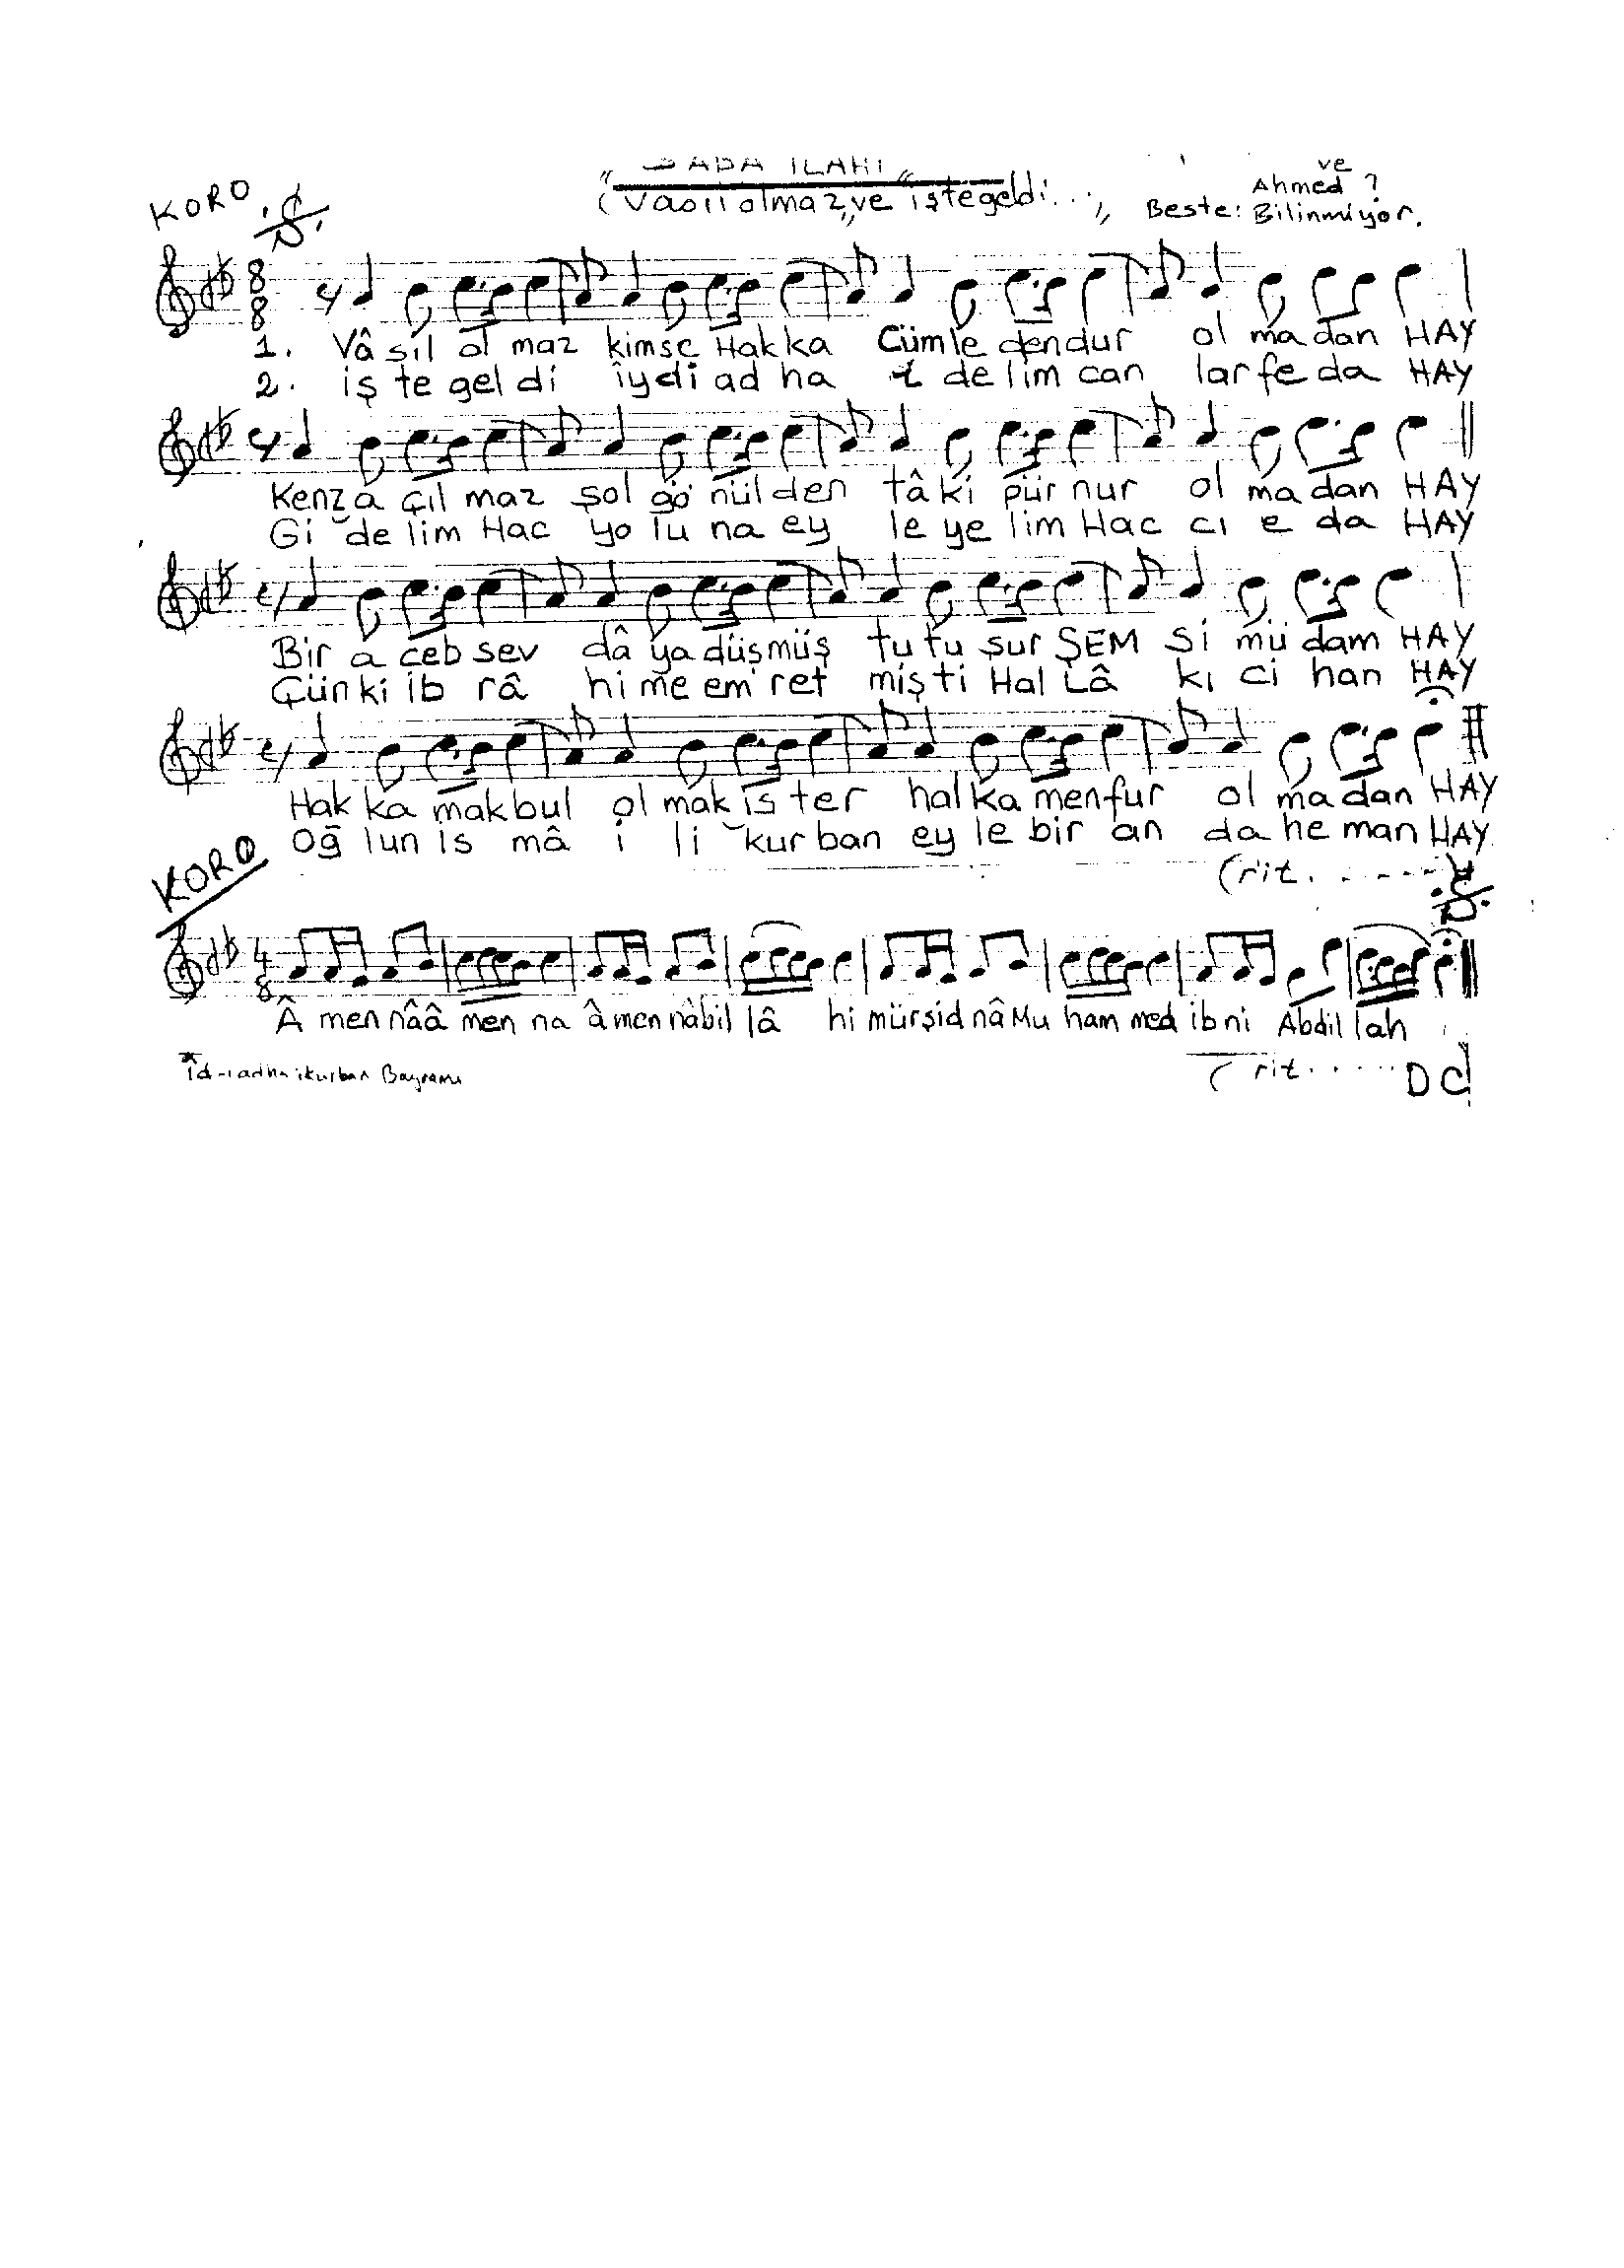 "SABA İLAHİ"
KORO
("Vasıl olmaz" ve "iştegeldi..."
ve
Ahmed ?
Beste: Bilinmiyor.
8
8
1. Vâ sıl ol maz kimse Hakka Cümle dendur ol madan HAY
2. iş te gel di îydi ad ha i de lim can lar fe da HAY
Kenz a çıl maz şol gö nülden tâ ki pür nur ol madan HAY
Gi de lim Hac yo lu na ey le ye lim Hac cı e da HAY
Bir a ceb sev dâ ya düşmüş tu tu şur ŞEM Sİ mü dam HAY
Çün ki ib râ hi me em ret miş ti Hal Lâ kı ci han HAY
Hak ka makbul ol mak is ter hal ka menfur ol madan HAY
Oğ lun İs mâ i li kur ban ey le bir an da he man HAY
(rit. .......
KORO
4
8
Â men nâ â men na â men nâ bil lâ hi mürşid nâ Mu ham med ib ni Abdil lah
* îd-i adha : kurban Bayramı
( rit. .....
DC